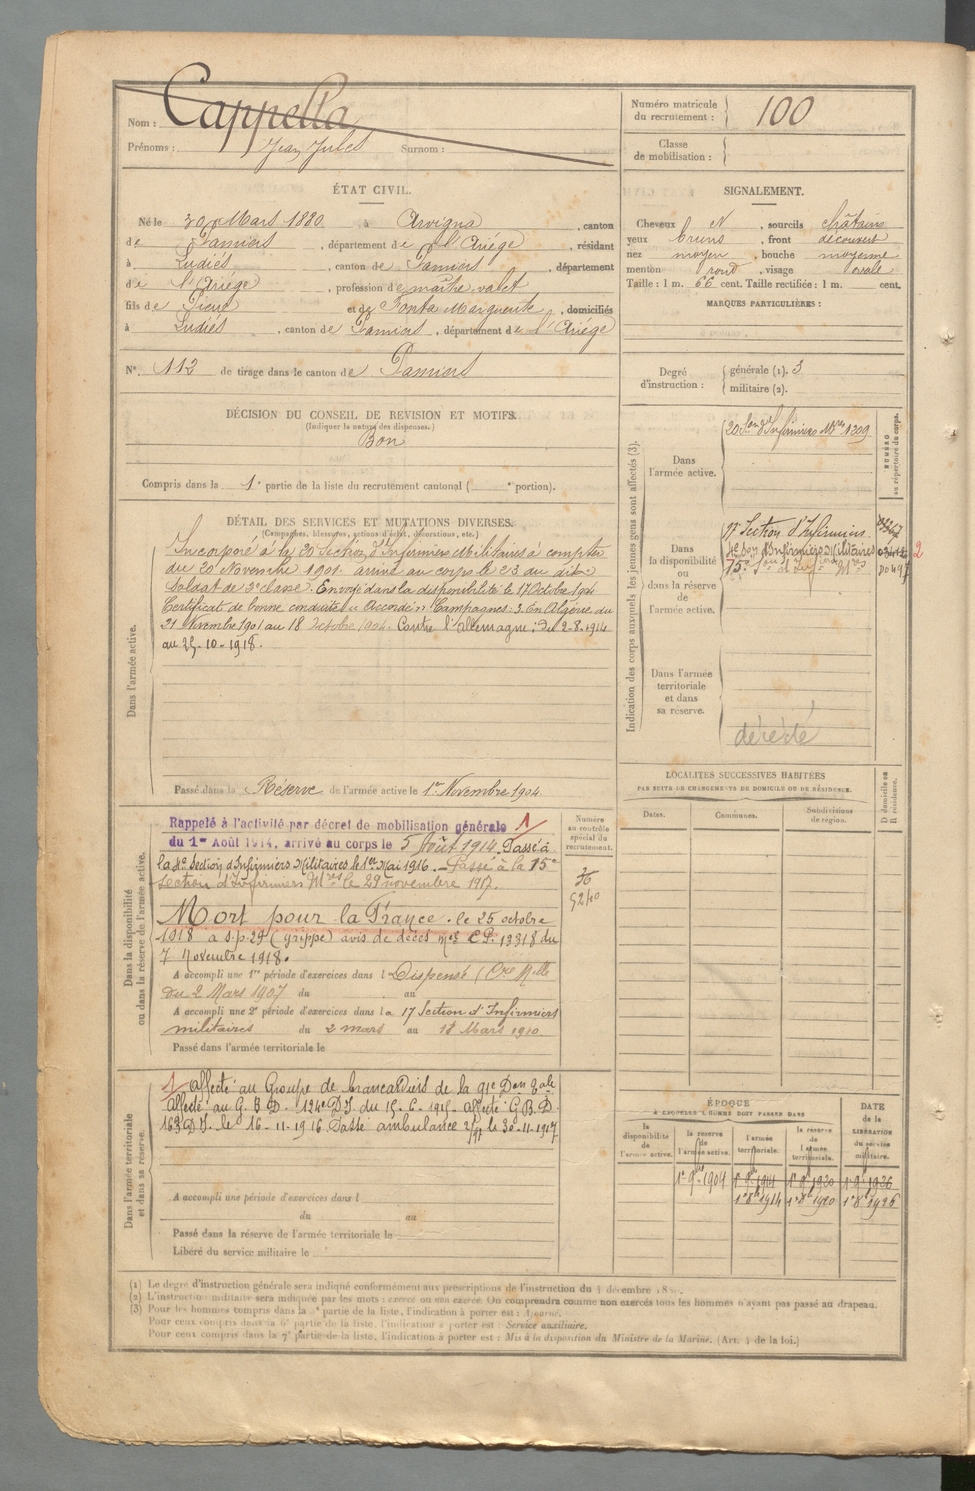 Nom : Cappella
Prénoms : Jean Jules Surnom :
Numéro matricule du recrutement : 100
Classe de mobilisation :
ÉTAT CIVIL.
Né le 30 Mars 1880, à Arvigna, canton
de Pamiers, département de l'Ariége, résidant
à Ludiés, canton de Pamiers, département
de l'Ariége, profession de maître valet
fils de Pierre et de Fonta Marguerite, domiciliés
à Ludiés, canton de Pamiers, département de l'Ariége
N° 112 de tirage dans le canton de Pamiers
SIGNALEMENT.
Cheveux N, sourcils châtains
yeux bruns, front découvert
nez moyen, bouche moyenne
menton rond, visage ovale
Taille : 1 m. 66 cent. Taille rectifiée : 1 m. cent.
MARQUES PARTICULIÈRES :
Degré d'instruction : générale (1). 3
militaire (2).
DÉCISION DU CONSEIL DE REVISION ET MOTIFS.
(Indiquer la nature des dispenses.)
Bon
Compris dans la 1e partie de la liste du recrutement cantonal ( e portion).
DÉTAIL DES SERVICES ET MUTATIONS DIVERSES.
(Campagnes, blessures, actions d'éclat, décorations, etc.)
Dans l'armée active.
Incorporé à la 20 Section d'Infirmiers Militaires à compter
du 20 Novembre 1901. arrivé au corps le 23 du dit
Soldat de 2e classe. Envoyé dans la disponibilité le 17 Octobre 1904
Certificat de bonne conduite "Accordé". Campagnes : 3. En Algérie du
21 Novembre 1901 au 18 Octobre 1904. Contre l'Allemagne : du 2-8-1914
au 25-10-1918.
Passé dans la Réserve de l'armée active le 1er Novembre 1904
Indication des corps auxquels les jeunes gens sont affectés (3).
NUMÉRO au répertoire du corps.
Dans l'armée active.
20 Son d'Infirmiers Mres 1309
Dans la disponibilité ou dans la réserve de l'armée active.
17e Section d'Infirmiers
4e Son d'Infirmiers Militaires 03412 2
15e Son d'Infiers Mres
Dans l'armée territoriale et dans sa réserve.
décédé
Dans la disponibilité ou dans la réserve de l'armée active.
Rappelé à l'activité par décret de mobilisation générale 1/
du 1er Août 1914, arrivé au corps le 5 Août 1914. Passé à
la 4e Section d'Infirmiers Militaires le 1er Mai 1916. – Passé à la 15e
section d'Infirmiers Mres le 29 novembre 1917.
Mort pour la France. le 25 octobre
1918 à s.p. 29 (grippe) avis de décès n° CP. 13318 du
7 Novembre 1918.
A accompli une 1re période d'exercices dans l Dispensé (Cre Mlle
du 2 Mars 1907 du au
A accompli une 2e période d'exercices dans la 17 Section d'Infirmiers
militaires du 2 mars au 18 Mars 1910
Passé dans l'armée territoriale le
Numéro au contrôle spécial du recrutement.
36
5240
LOCALITÉS SUCCESSIVES HABITÉES
PAR SUITE DE CHANGEMENTS DE DOMICILE OU DE RÉSIDENCE.
Dates. Communes. Subdivisions de région. D domicile ou R résidence.
Dans l'armée territoriale et dans sa réserve.
1/ Affecté au Groupe de brancardiers de la 91e Don Tale
Affecté au G. B. D. 124e D.I. du 15-6-1915 – affecté G.B.D.
163 D.I. le 16-11-1916 Passé ambulance 2/91 le 30-11-1917
A accompli une période d'exercices dans l
du au
Passé dans la réserve de l'armée territoriale le
Libéré du service militaire le
ÉPOQUE
À LAQUELLE L'HOMME DOIT PASSER DANS
la disponibilité de l'armée active.
la réserve de l'armée active.
l'armée territoriale.
la réserve de l'armée territoriale.
DATE de la LIBÉRATION du service militaire.
1er 9bre 1904 1er 9bre 1914 1er 9bre 1920 1er 9bre 1926
1er 8bre 1914 1er 8bre 1920 1er 8bre 1926
(1) Le degré d'instruction générale sera indiqué conformément aux prescriptions de l'instruction du 4 décembre 18
(2) L'instruction militaire sera indiquée par les mots : exercé ou non exercé. On comprendra comme non exercés tous les hommes n'ayant pas passé au drapeau.
(3) Pour les hommes compris dans la partie de la liste, l'indication à porter est : Ajourné.
Pour ceux compris dans la 6e partie de la liste, l'indication à porter est : Service auxiliaire.
Pour ceux compris dans la 7e partie de la liste, l'indication à porter est : Mis à la disposition du Ministre de la Marine. (Art. 4 de la loi.)